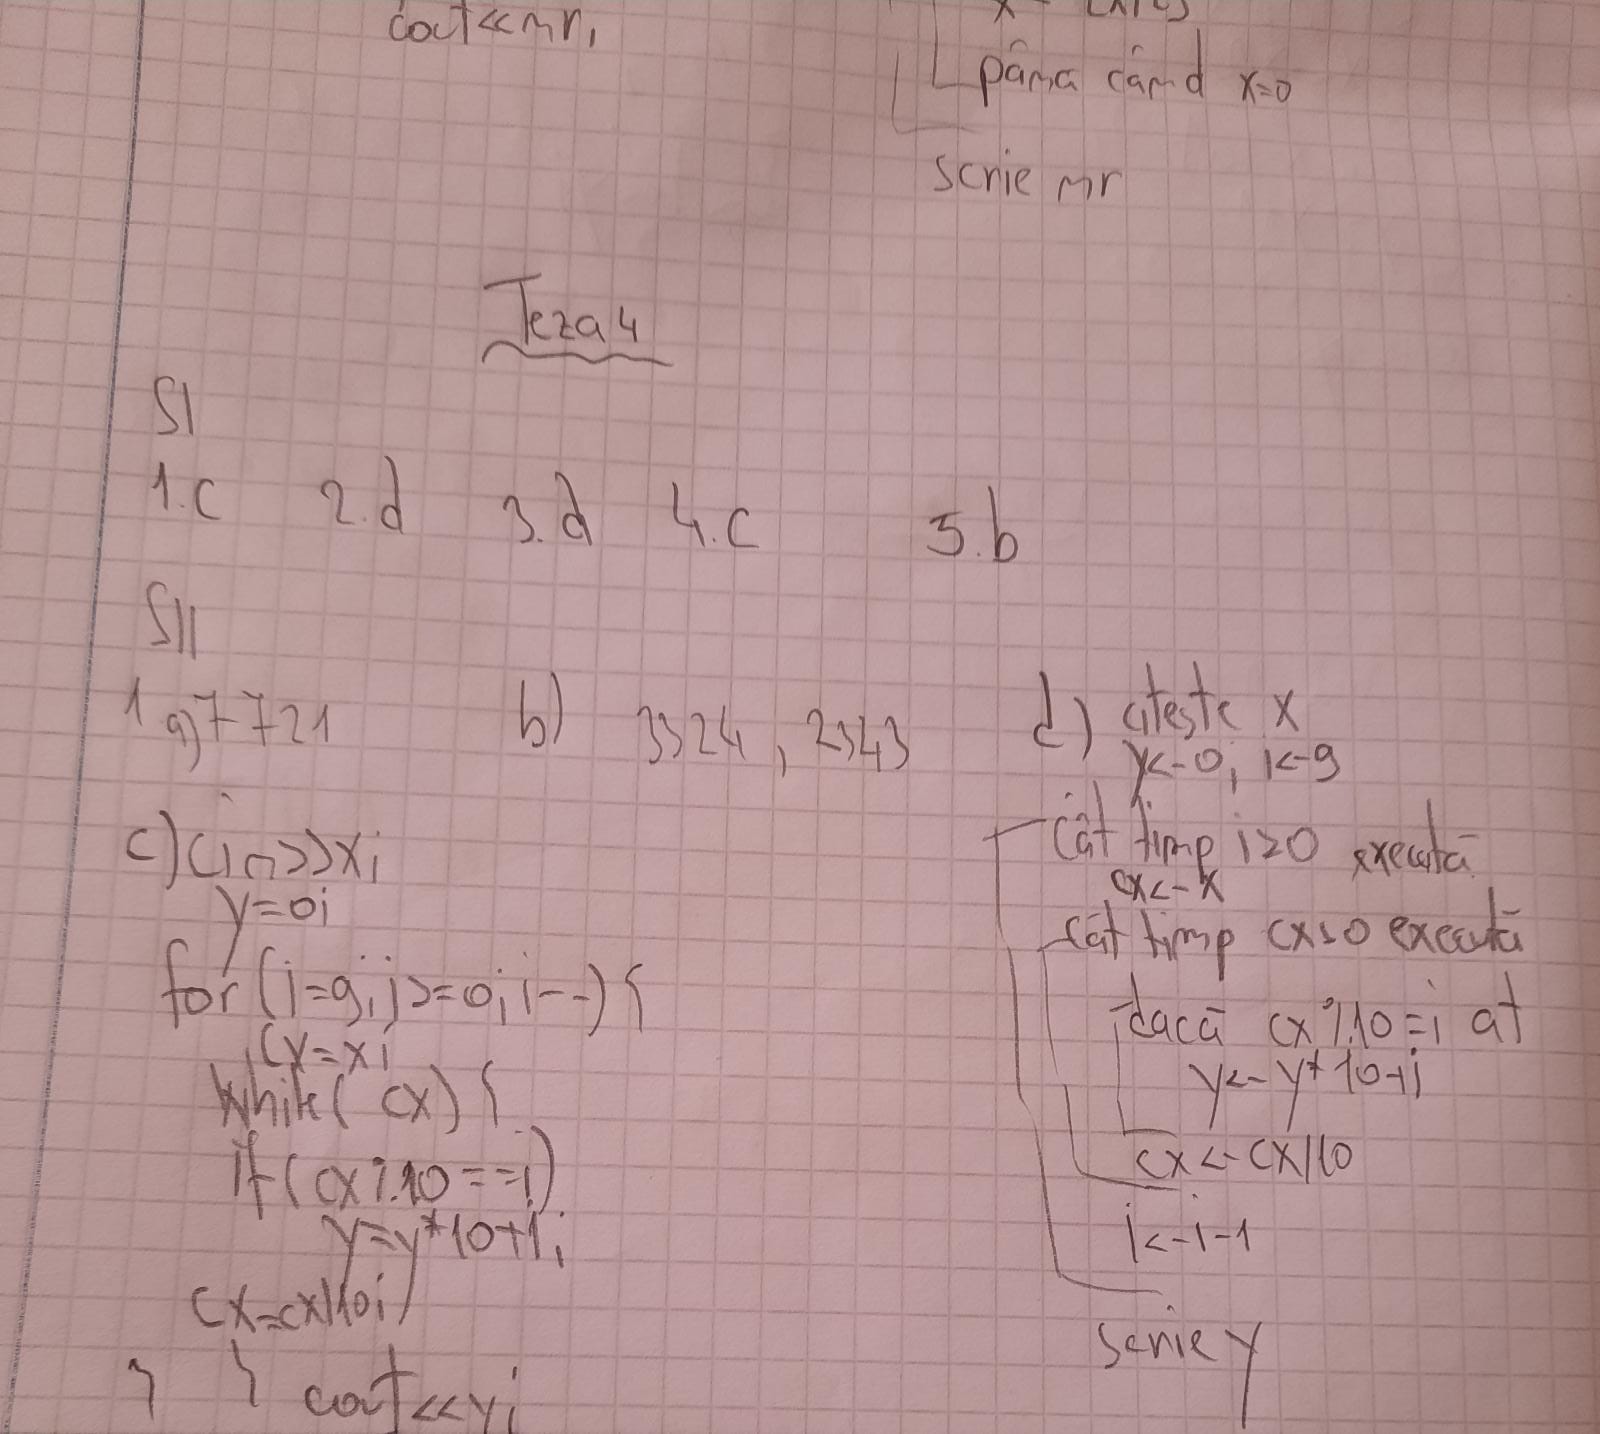 cout<<nr;
până când x=0
scrie nr
Teza 4
SI
1.c 2.d 3.d 4.c 5.b
SII
1 a) 7721 b) 3324, 2343
c) cin>>x;
y=0;
for (i=9;i>=0;i--) {
cx=x;
while( cx) {
if( cx%10==i)
y=y*10+i;
cx=cx/10;
} } cout<<y;
d) citește x
y<-0; i<-9
cât timp i≥0 execută
cx<-x
cât timp cx>0 execută
dacă cx%10=i at
y<-y*10+i
cx<-cx/10
i<-i-1
scrie y